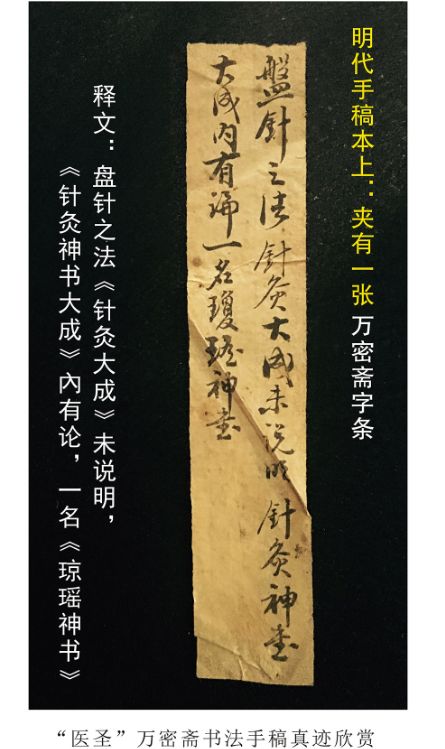 明代手稿本上：夹有一张 万密斋字条
盤针之法针灸大成未说明针灸神書
大成内有論一名瓊瑤神書
释文：盘针之法《针灸大成》未说明，
《针灸神书大成》內有论，一名《琼瑶神书》
“医圣”万密斋书法手稿真迹欣赏